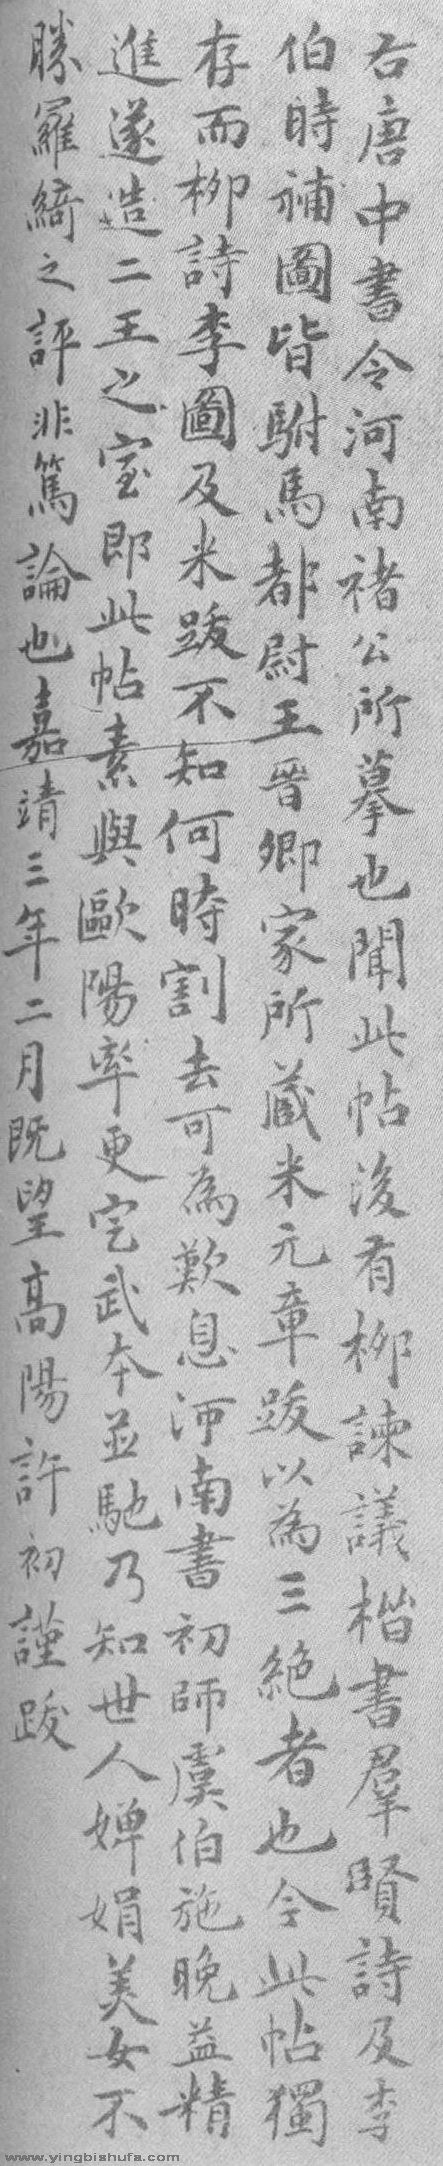 右唐中書令河南褚公所摹也聞此帖後有柳諫議楷書羣賢詩及李
伯時補圖皆駙馬都尉王晉卿家所藏米元章跋以為三絕者也今此帖獨
存而柳詩李圖及米跋不知何時割去可為歎息河南書初師虞伯施晚益精
進遂造二王之室即此帖素與歐陽率更定武本並馳乃知世人嬋娟美女不
勝羅綺之評非篤論也嘉靖三年二月既望高陽許初謹跋
www.yingbishufa.com